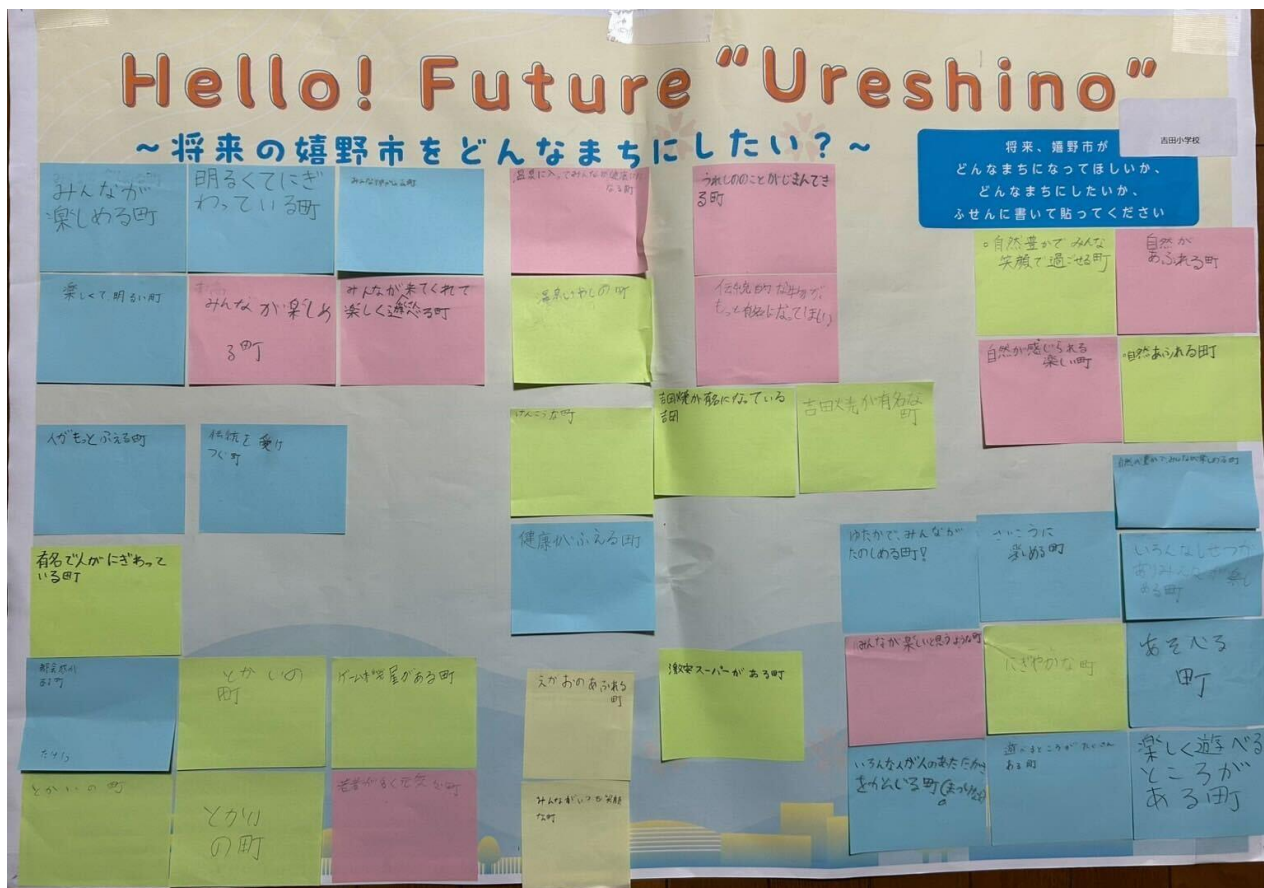 Hello! Future "Ureshino"
~将来の嬉野市をどんなまちにしたい?~
吉田小学校
将来、嬉野市が
どんなまちになってほしいか、
どんなまちにしたいか、
ふせんに書いて貼ってください
みんなが
楽しめる町
明るくてにぎ
わっている町
温泉に入ってみんなが
なる町
うれしののことがじまんでき
る町
楽しくて明るい町
みんなが楽しめ
る町
みんなが来てくれて
楽しく遊べる町
温泉いやしの町
伝統的な
もっと有名になってほしい
。自然豊かでみんな
笑顔で過ごせる町
自然が
あふれる町
自然が感じられる
楽しい町
自然あふれる町
人がもっとふえる町
伝統を受け
つぐ町
けんこうな町
吉田焼が有名になっている
吉田
吉田焼が有名な
町
有名で人がにぎわって
いる町
健康がふえる町
自然が豊かでみんなが楽しめる町
ゆたかで、みんなが
たのしめる町!
さいこうに
楽しめる町
いろんなしせつが
ありみんなが楽し
める町
ある町
とかいの
町
ゲームがある町
えがおのあふれる
町
激安スーパーがある町
みんなが楽しいと思うような町
にぎやかな町
あそべる
町
とかいの町
とかい
の町
町
みんながいつも笑顔
な町
いろんな人が人のあたたかさ
をかんじる町
遊べるところがたくさん
ある町
楽しく遊べる
ところが
ある町